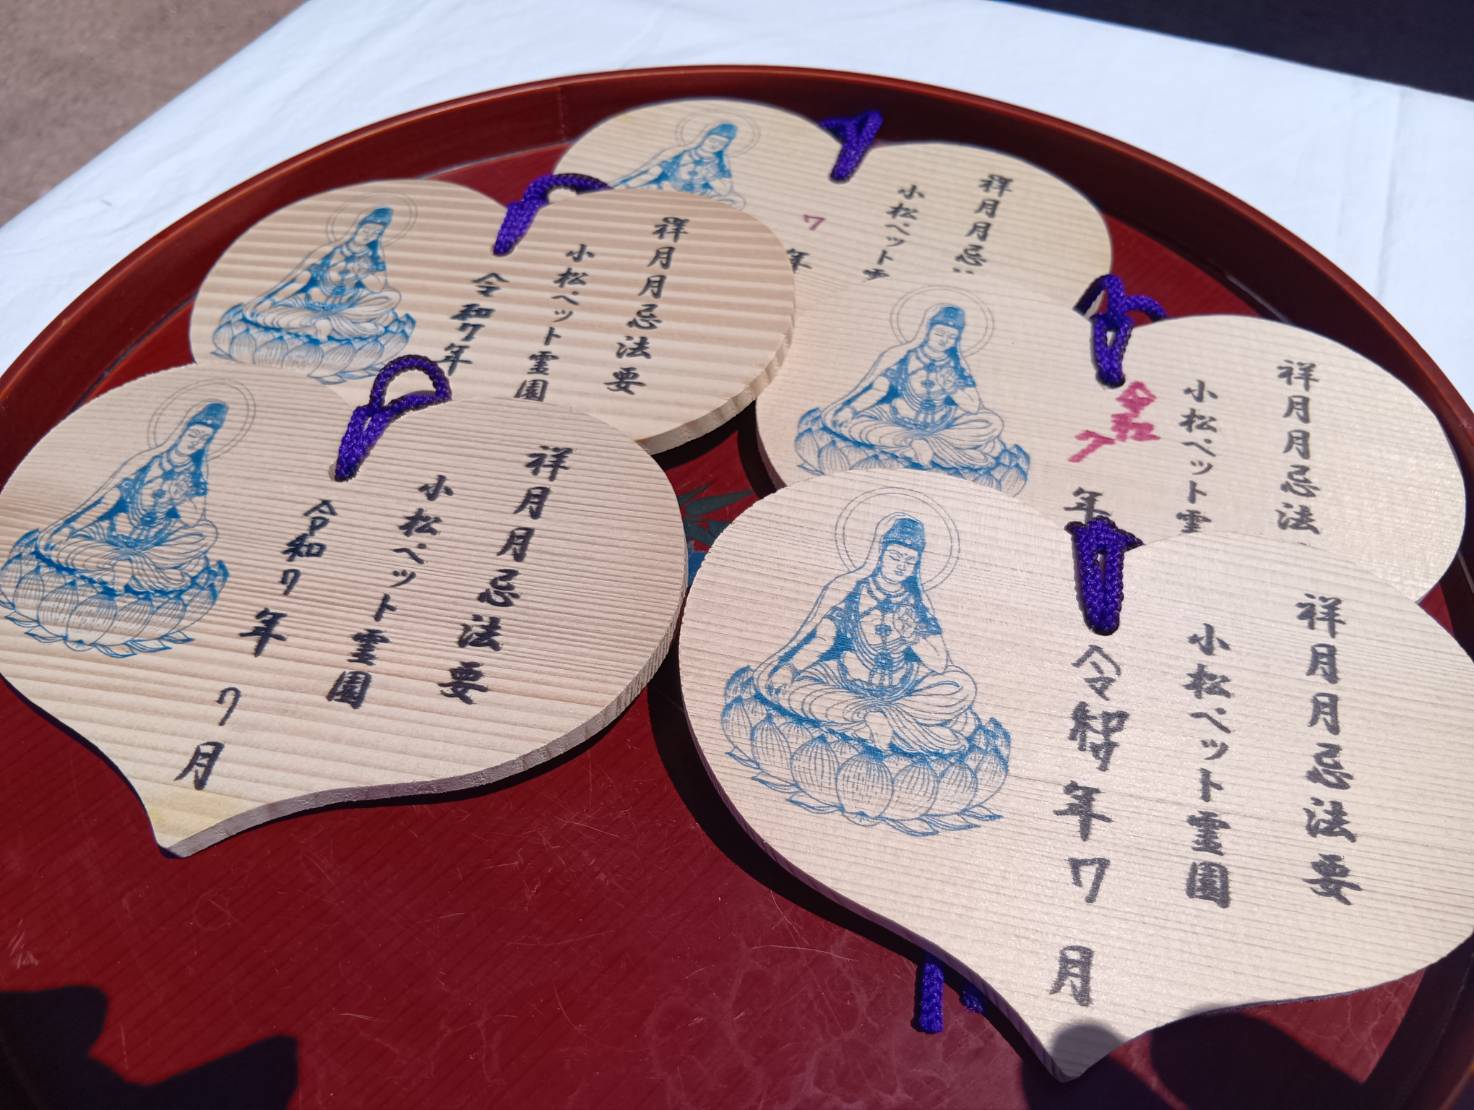 祥月月忌
小松ペット霊
7
年
祥月月忌法要
小松ペット霊園
令和7年
祥月月忌法
小松ペット霊
令和7
年
祥月月忌法要
小松ペット霊園
令和7年
7月
祥月月忌法要
小松ペット霊園
年7月